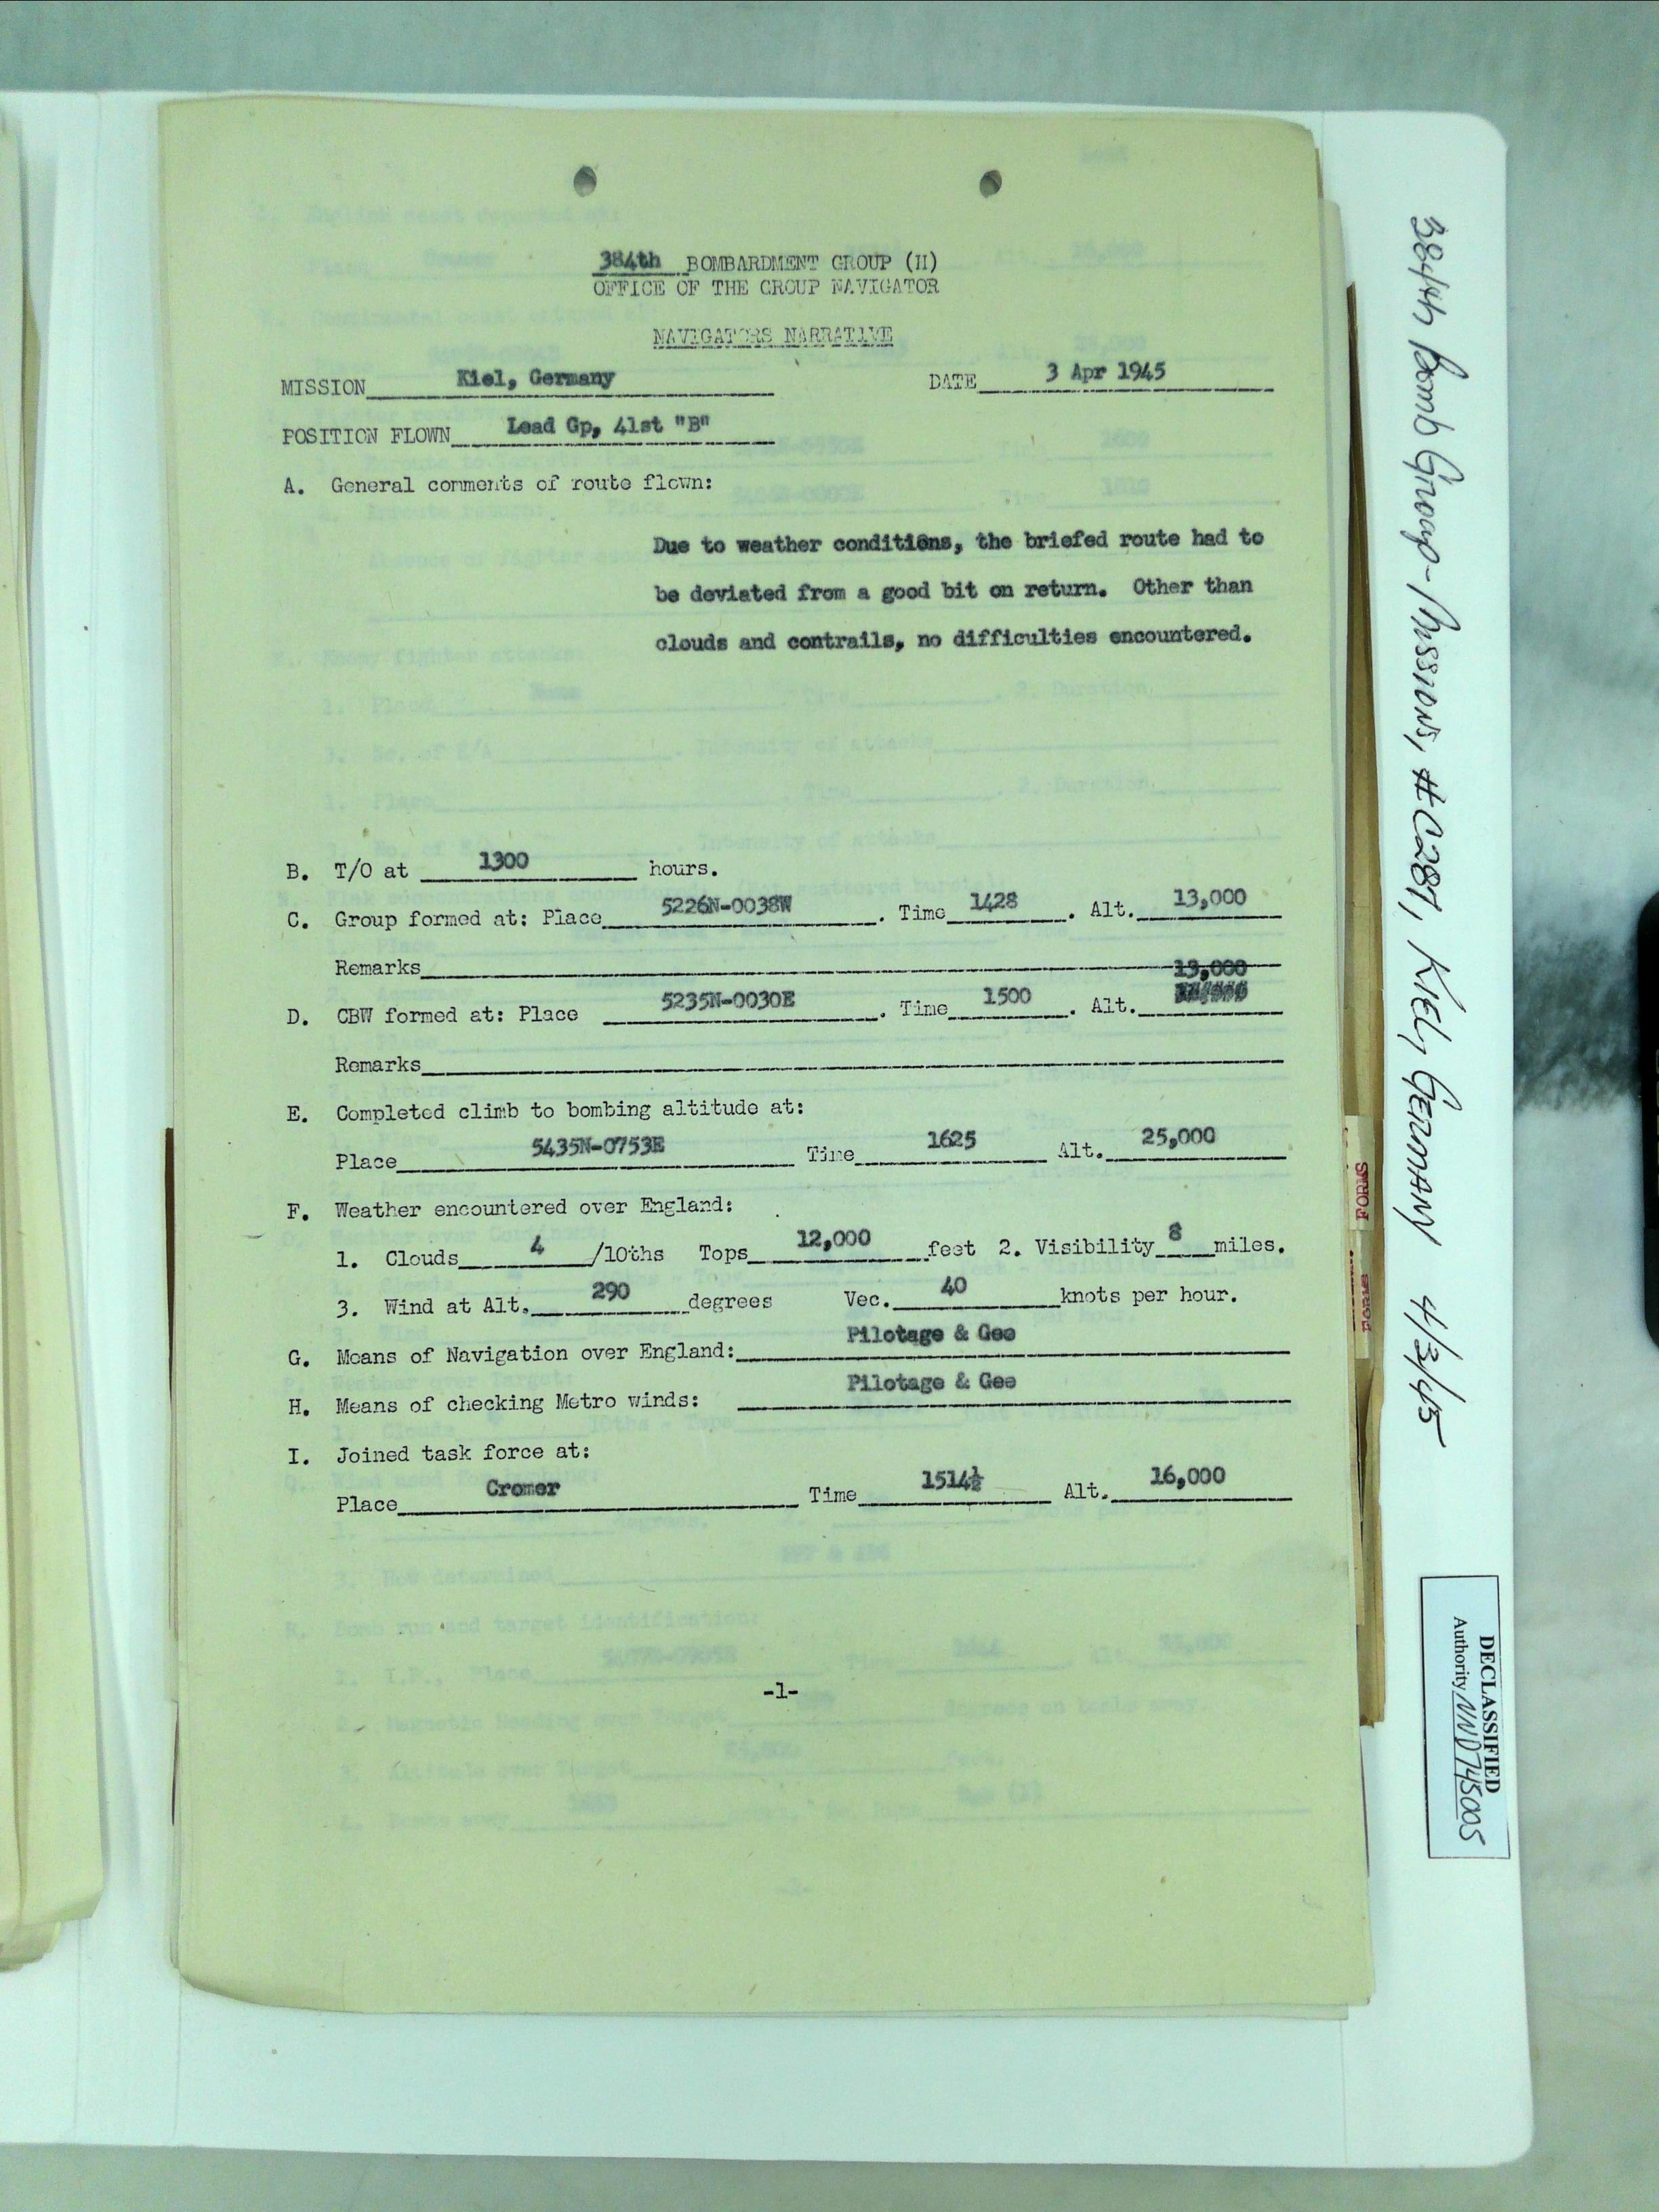 384th BOMBARDMENT GROUP (H)
OFFICE OF THE GROUP NAVIGATOR
NAVIGATORS NARRATIVE
MISSION Kiel, Germany DATE 3 Apr 1945
POSITION FLOWN Lead Gp, 41st "B"
A. General comments of route flown:
Due to weather conditions, the briefed route had to
be deviated from a good bit on return. Other than
clouds and contrails, no difficulties encountered.
B. T/O at 1300 hours.
C. Group formed at: Place 5226N-0038W. Time 1428. Alt. 13,000
Remarks
13,000
D. CBW formed at: Place 5235N-0030E. Time 1500. Alt.
Remarks
E. Completed climb to bombing altitude at:
Place 5435N-0753E Time 1625 Alt. 25,000
F. Weather encountered over England:
1. Clouds 4 /10ths Tops 12,000 feet 2. Visibility 8 miles.
3. Wind at Alt. 290 degrees Vec. 40 knots per hour.
G. Means of Navigation over England: Pilotage & Gee
H. Means of checking Metro winds: Pilotage & Gee
I. Joined task force at:
Place Cromer Time 1514½ Alt. 16,000
-1-
384th Bomb Group - Missions, #C287, KIEL, GERMANY 4/3/45
FORMS
FORMS
DECLASSIFIED
Authority NND745005